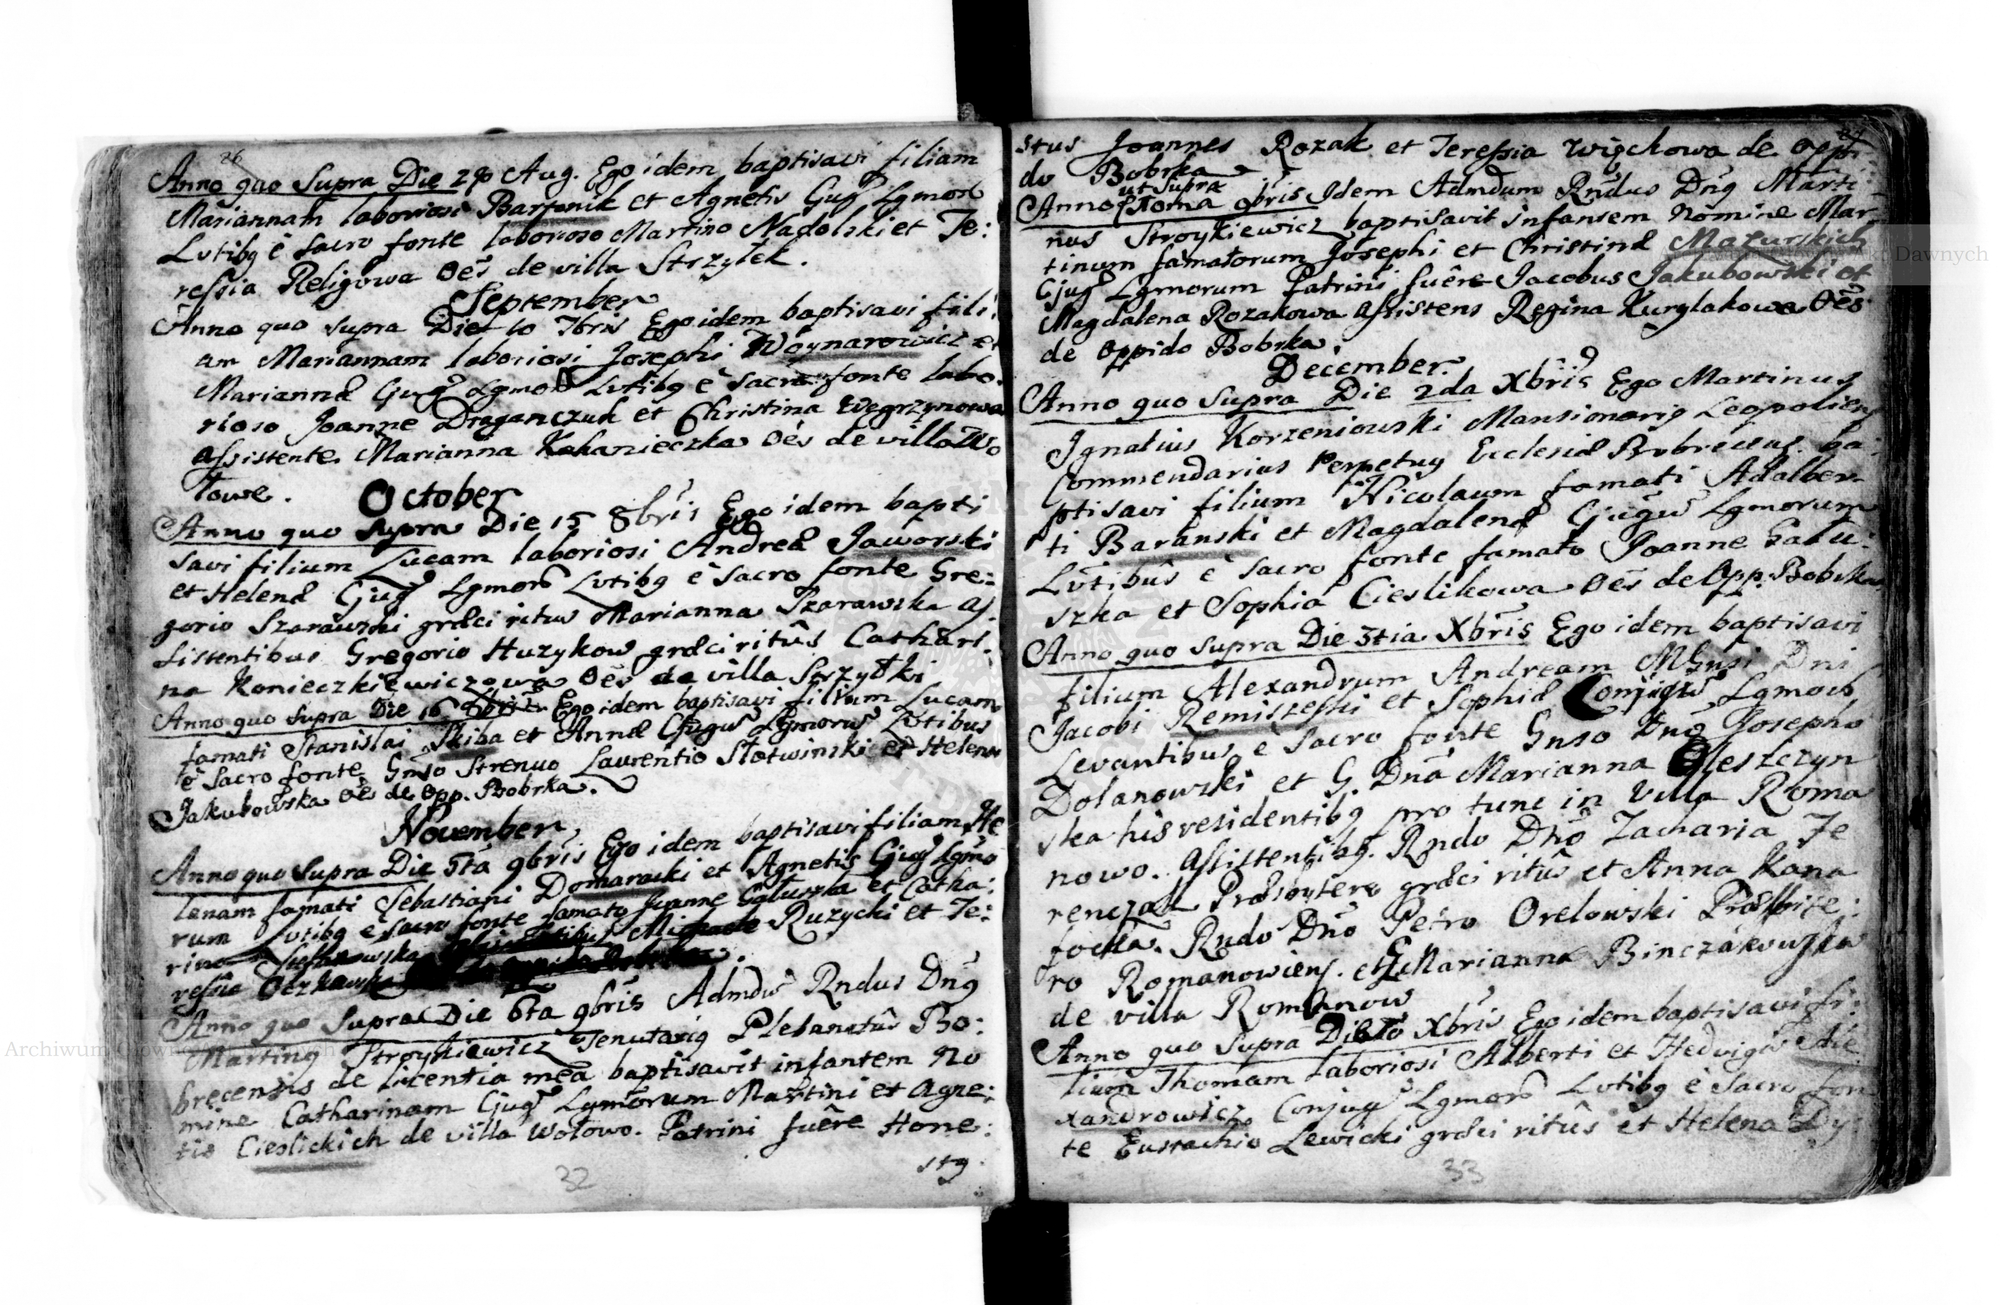 26
Anno quo Supra Die 28 Aug. Ego idem baptisavi filiam
Mariannam laboriosi Bartonik et Agnetis Cjug Lgmor
Lvtibg è sacro fonte laborioso Martino Nadolski et Te:
ressia Religowa Oēs de villa Strzyłek.
September
Anno quo supra Die 10 7bris Ego idem baptisavi fili:
am Mariannam laboriosi Josephi Woynarowicz et
Mariannæ Cjug Lgmor Lvtibg è Sacro fonte labo.
rioso Joanne Draganczuk et Christina Węgrzynowa
assistente Marianna Kohanieczka Oēs de villa Wo
łowe.
October
Anno quo Supra Die 15 8bris Ego idem bapti
savi filium Lucam laboriosi Andreæ Jaworski
et Helenæ Cjug Lgmor Lvtibg è Sacro fonte Gre:
gorio Szarawski græci ritus Marianna Szarawska as
sistentibus Gregorio Huzykow græci ritûs Cathari.
na Konieczkiewiczowa Oēs de villa Strzyłki
Anno quo Supra Die 16 8bris Ego idem baptisavi filium Lucam
famati Stanislai Skiba et Annæ Cjugu Lgmorum Lvtibus
è Sacro fonte Gnso Strenuo Laurentio Słotwinski et Helena
Jakubowska Oēs de Opp. Bobrka.
November
Anno quo Supra Die 5ta 9bris Ego idem baptisavi filiam He
lenam famati Sebastiani Domaracki et Agnetis Cjug Lgmo
rum Lvtibg è Sacro fonte famato Joanne Gałuszka et Catha:
rina Stefanowska Michaele Ruzycki et Te:
ressia Oczkowska
Anno quo Supra Die 6ta 9bris Admdu Rndus Dng
Marting Stroykiewicz Tenutarig Plebanatûs Bo:
brecensis de licentia meâ baptisavit infantem No
mine Catharinam Cjug Lgmorum Martini et Agne:
tis Cieslickich de villa Wołowo. Patrini fuêre Hone:
stg.
32
27
stus Joannes Rozak et Teressia Więchowa de Oppi:
do Bobrka
ut supra
Anno 10ma 9bris Idem Admdum Rndus Dng Marti:
nus Stroykiewicz baptisavit infansem Nomine Mar-
tinum famatorum Josephi et Christinæ Mazurskich
Cjug Lgmorum Patrini fuêre Jacobus Jakubowski et
Magdalena Rozakowa Assistens Regina Kurylakowa Oēs
de Oppido Bobrka.
December.
Anno quo Supra Die 2da Xbris Ego Martinus
Ignatius Korzeniowski Mansionarig Leopolien
Commendarius Perpetug Ecclesiæ Bobrecens. ba:
ptisavi filium Nicolaum famati Adalber
ti Baranski et Magdalenæ Cjugu Lgmorum
Lvtibus è Sacro fonte famato Joanne Gału:
szka et Sophia Cieslikowa Oēs de Opp. Bobrka
Anno quo Supra Die 3tia Xbris Ego idem baptisavi
filium Alexandrum Andream MGnsi Dni
Jacobi Remiszewski et Sophiæ Conjugu Lgmor
Levantibus è Sacro fonte Gnso Dnō Josepho
Dolanowski et G. Dnâ Marianna Oleszczyn
ska his residentibg pro tunc in Villa Roma
nowo. Assistentibg. Rndo Dnō Zacharia Te
renczak Præsbytero græci ritûs et Anna Kana
focka. Rndo Dnō Petro Orelowski Præsbite:
ro Romanowiens. et Marianna Binczakowska
de villa Romanow
Anno quo Supra Die 10 Xbris Ego idem baptisavi fi:
lium Thomam laboriosi Alberti et Hedvigis Ale
xandrowicz Conjug Lgmor Lvtibg è Sacro fon
te Eustachio Lewicki græci ritûs et Helena Dy:
33
Archiwum Główne Akt Dawnych
Archiwum Główne Akt Dawnych